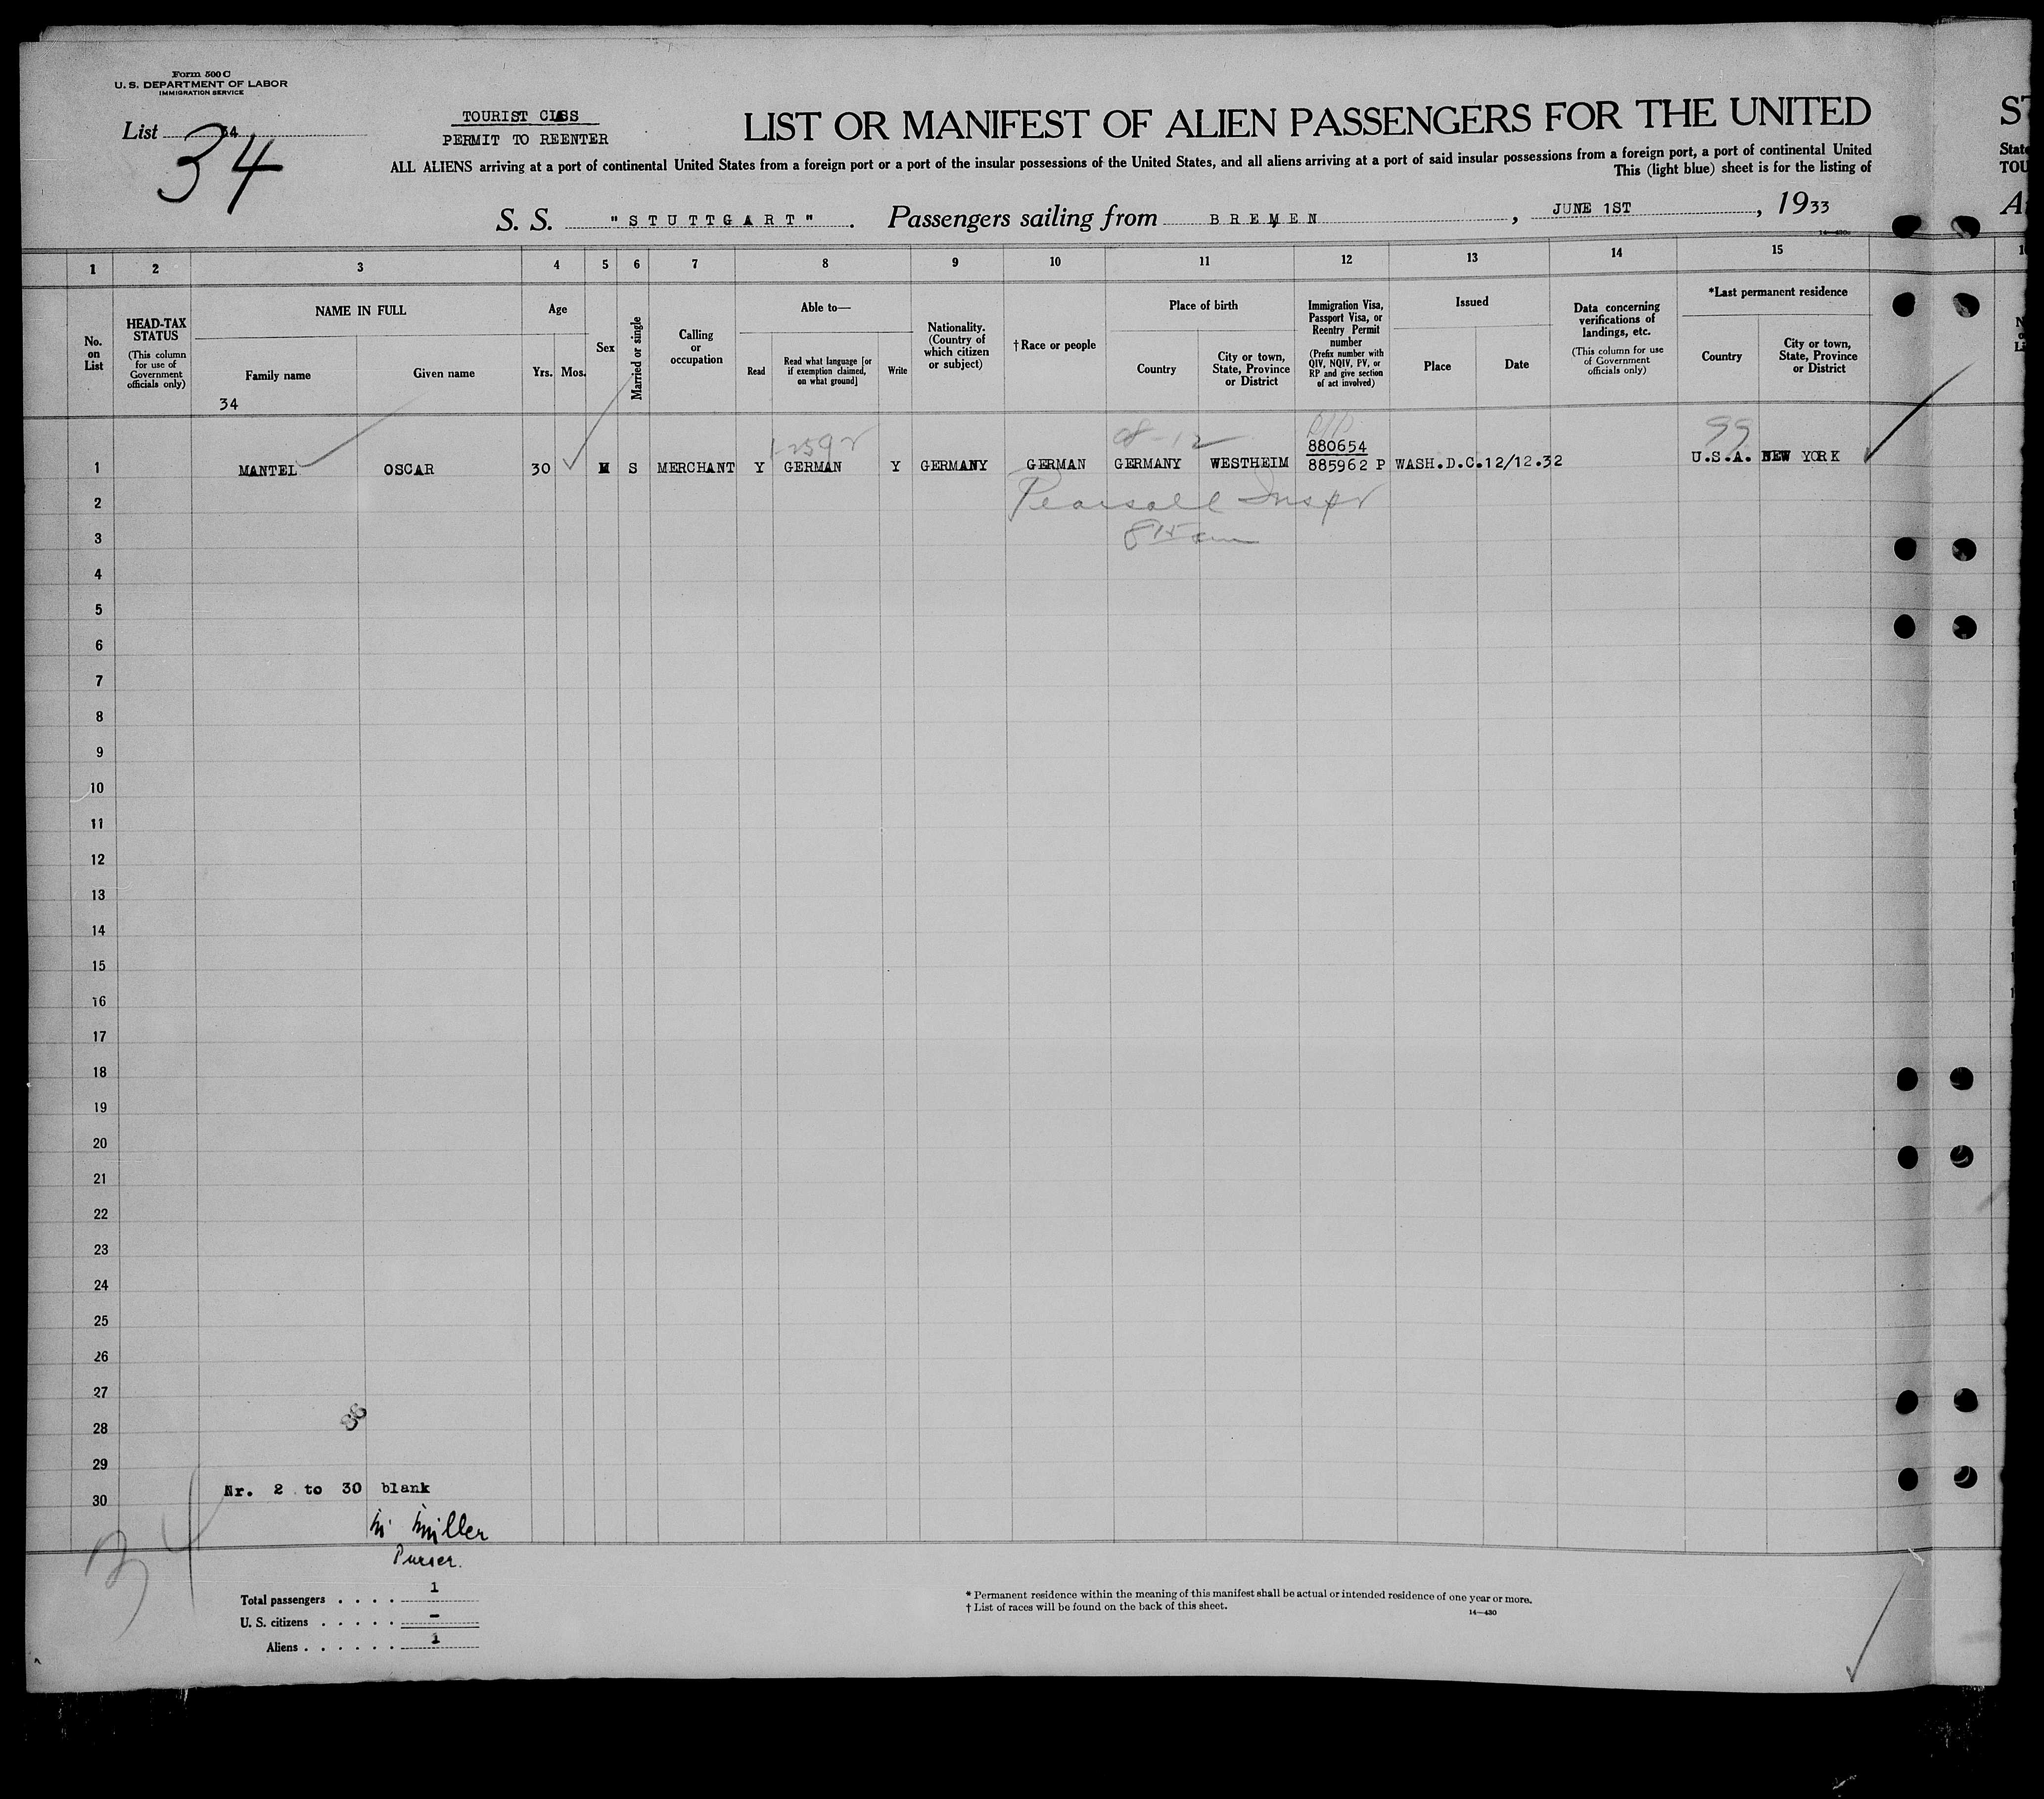 Form 500 C
U. S. DEPARTMENT OF LABOR
IMMIGRATION SERVICE
List 34
34
TOURIST CLASS
PERMIT TO REENTER
LIST OR MANIFEST OF ALIEN PASSENGERS FOR THE UNITED
ST
ALL ALIENS arriving at a port of continental United States from a foreign port or a port of the insular possessions of the United States, and all aliens arriving at a port of said insular possessions from a foreign port, a port of continental United
State
This (light blue) sheet is for the listing of
TOU
S. S. "STUTTGART". Passengers sailing from BREMEN, JUNE 1ST, 1933
14—430
1 2 3 4 5 6 7 8 9 10 11 12 13 14 15
No. on List
HEAD-TAX STATUS
(This column for use of Government officials only)
NAME IN FULL
Family name
Given name
34
Age
Yrs.
Mos.
Sex
Married or single
Calling or occupation
Able to—
Read
Read what language [or if exemption claimed, on what ground]
Write
Nationality. (Country of which citizen or subject)
† Race or people
Place of birth
Country
City or town, State, Province or District
Immigration Visa, Passport Visa, or Reentry Permit number
(Prefix number with QIV, NQIV, PV, or RP and give section of act involved)
Issued
Place
Date
Data concerning verifications of landings, etc.
(This column for use of Government officials only)
*Last permanent residence
Country
City or town, State, Province or District
08-12
99
880654
1 MANTEL OSCAR 30 M S MERCHANT Y GERMAN Y GERMANY GERMAN GERMANY WESTHEIM 885962 P WASH.D.C. 12/12.32 U.S.A. NEW YORK
Pearsall Inspr
8 15 am
2
3
4
5
6
7
8
9
10
11
12
13
14
15
16
17
18
19
20
21
22
23
24
25
26
27
28
29
30
Nr. 2 to 30 blank
Miller
Purser.
34
Total passengers . . . . 1
U. S. citizens . . . . . –
Aliens . . . . . . 1
* Permanent residence within the meaning of this manifest shall be actual or intended residence of one year or more.
† List of races will be found on the back of this sheet.
14—430